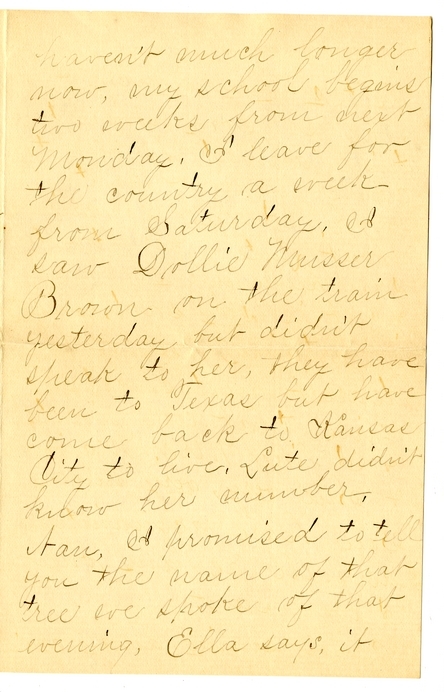 haven't much longer
now, my school begins
two weeks from next
Monday. I leave for
the country a week
from Saturday. I
saw Dollie Musser
Brown on the train
yesterday but didn't
speak to her, they have
been to Texas but have
come back to Kansas
City to live. Lute didn't
know her number.
Nan, I promised to tell
you the name of that
tree we spoke of that
evening, Ella says, it